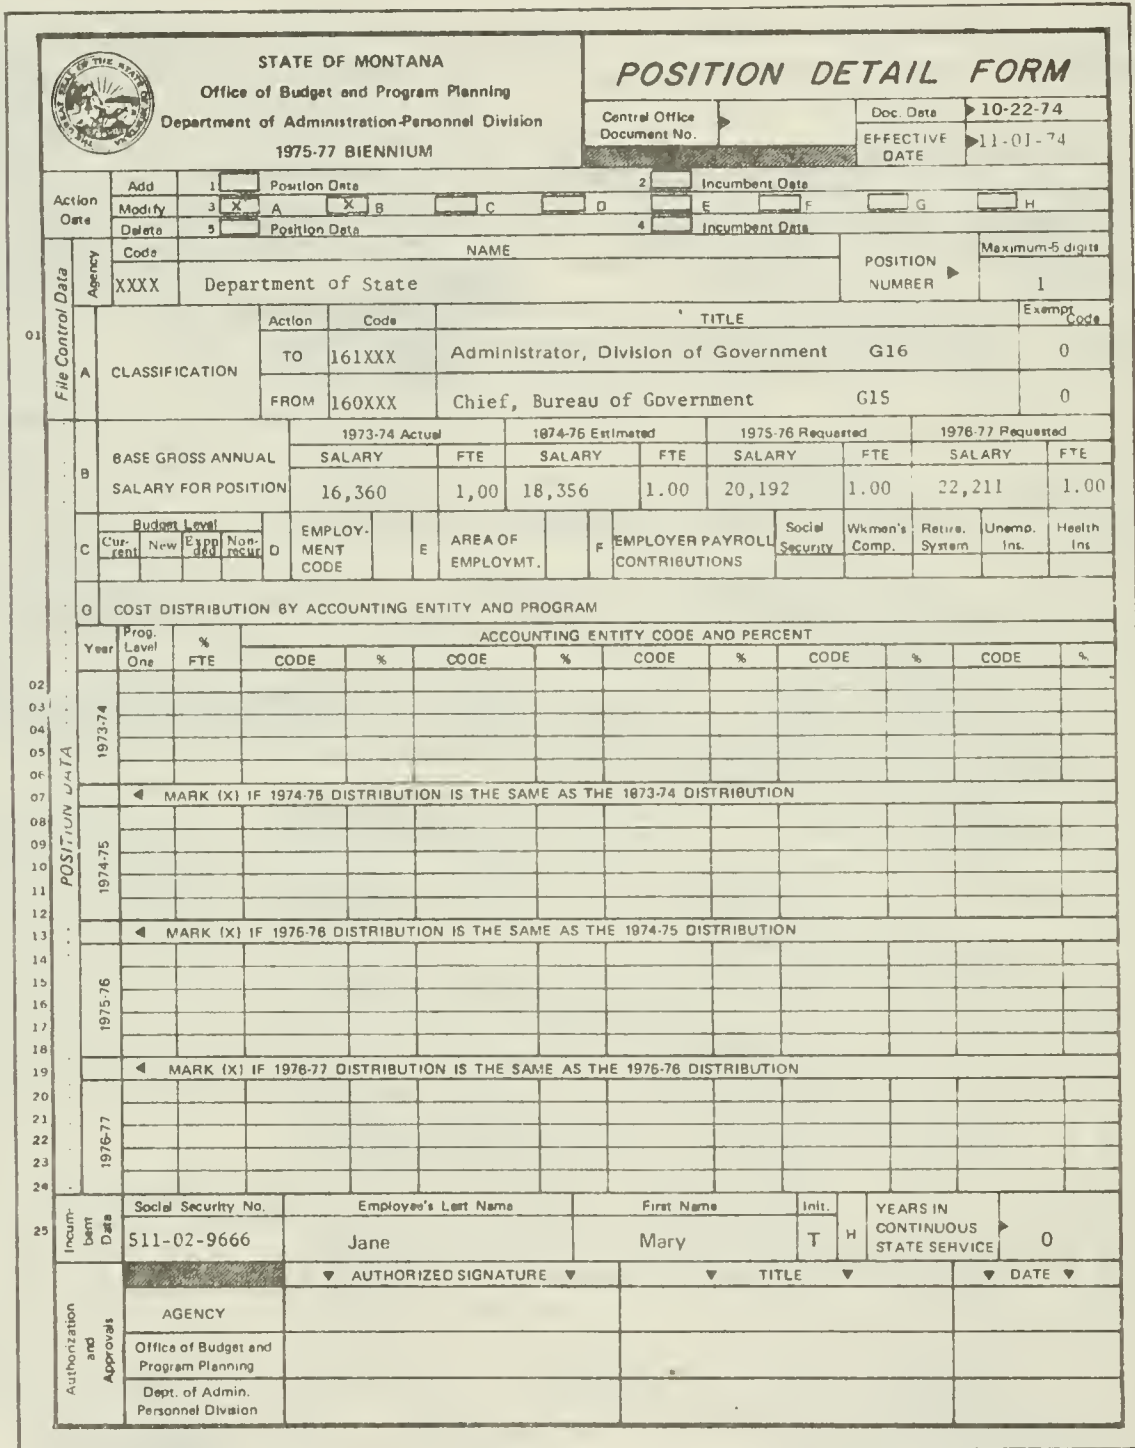 STATE OF MONTANA
Office of Budget and Program Planning
Department of Administration-Personnel Division
1975-77 BIENNIUM
POSITION DETAIL FORM
Central Office Document No.
Doc. Date 10-22-74
EFFECTIVE DATE 11-01-74
Action Date
Add 1 Position Data 2 Incumbent Data
Modify 3 X A X B C D E F G H
Delete 5 Position Data 4 Incumbent Data
File Control Data
Agency
Code NAME
XXXX Department of State
POSITION NUMBER
Maximum-5 digits
1
01
A CLASSIFICATION
Action Code TITLE Exempt Code
TO 161XXX Administrator, Division of Government G16 0
FROM 160XXX Chief, Bureau of Government G15 0
B BASE GROSS ANNUAL SALARY FOR POSITION
1973-74 Actual 1974-75 Estimated 1975-76 Requested 1976-77 Requested
SALARY FTE SALARY FTE SALARY FTE SALARY FTE
16,360 1,00 18,356 1.00 20,192 1.00 22,211 1.00
C Budget Level
Current New Expnded Non-recur
D EMPLOY-MENT CODE
E AREA OF EMPLOYMT.
F EMPLOYER PAYROLL CONTRIBUTIONS
Social Security Wkmen's Comp. Retire. System Unemp. Ins. Health Ins
G COST DISTRIBUTION BY ACCOUNTING ENTITY AND PROGRAM
Year Prog. Level One % FTE
ACCOUNTING ENTITY CODE AND PERCENT
CODE % CODE % CODE % CODE % CODE %
POSITION DATA
02
03
04
05
06
1973-74
07 MARK (X) IF 1974-75 DISTRIBUTION IS THE SAME AS THE 1973-74 DISTRIBUTION
08
09
10
11
12
1974-75
13 MARK (X) IF 1975-76 DISTRIBUTION IS THE SAME AS THE 1974-75 DISTRIBUTION
14
15
16
17
18
1975-76
19 MARK (X) IF 1976-77 DISTRIBUTION IS THE SAME AS THE 1975-76 DISTRIBUTION
20
21
22
23
24
1976-77
25
Incum-bent Data
Social Security No. Employee's Last Name First Name Init. H YEARS IN CONTINUOUS STATE SERVICE
511-02-9666 Jane Mary T 0
Authorization and Approvals
AUTHORIZED SIGNATURE TITLE DATE
AGENCY
Office of Budget and Program Planning
Dept. of Admin. Personnel Division